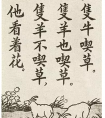 隻牛喫草，
隻羊也喫草，
隻羊不喫草，
他看着花。